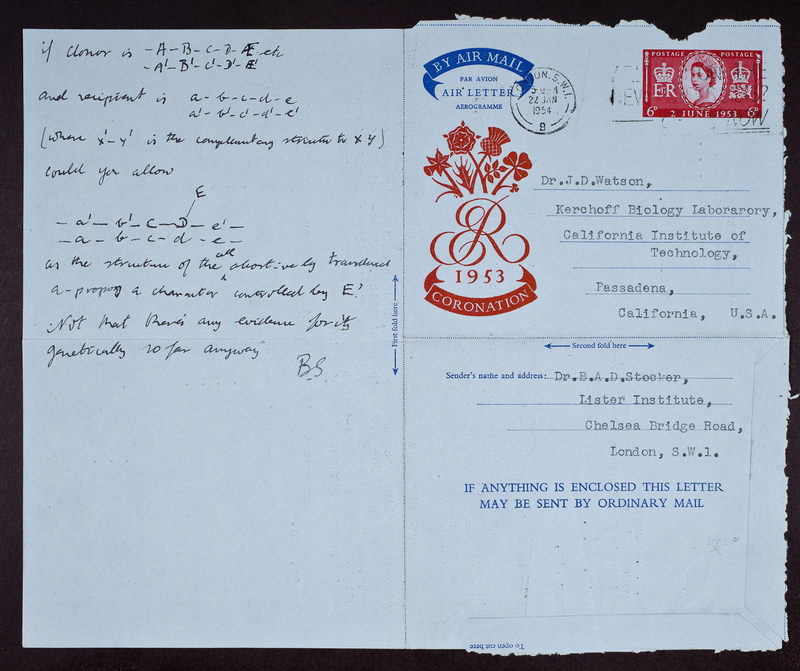 if donor is -A-B-C-D-Æ etc
-A'-B'-C'-D'-E'
and recipient is a-b-c-d-e
a'-b'-c'-d'-e'
(where x'-y' is the complementary structure to x y)
could you allow
E
- a' - b' - C - D - e' -
- a - b - c - d - e -
as the structure of the cell abortively transduced
a-propos a character controlled by E?
Not that there's any evidence for it
genetically so far anyway
B.S
BY AIR MAIL
PAR AVION
AIR LETTER
AEROGRAMME
1953
CORONATION
LONDON.S.W.1
22 JAN
1954
9
POSTAGE POSTAGE
E II R
6D 2 JUNE 1953 6D
NOW
Dr.J.D.Watson,
Kerchoff Biology Laborarory,
California Institute of
Technology,
Passadena,
California, U.S.A.
First fold here
Second fold here
Sender's name and address: Dr.B.A.D.Stocker,
Lister Institute,
Chelsea Bridge Road,
London, S.W.1.
IF ANYTHING IS ENCLOSED THIS LETTER
MAY BE SENT BY ORDINARY MAIL
To open cut here